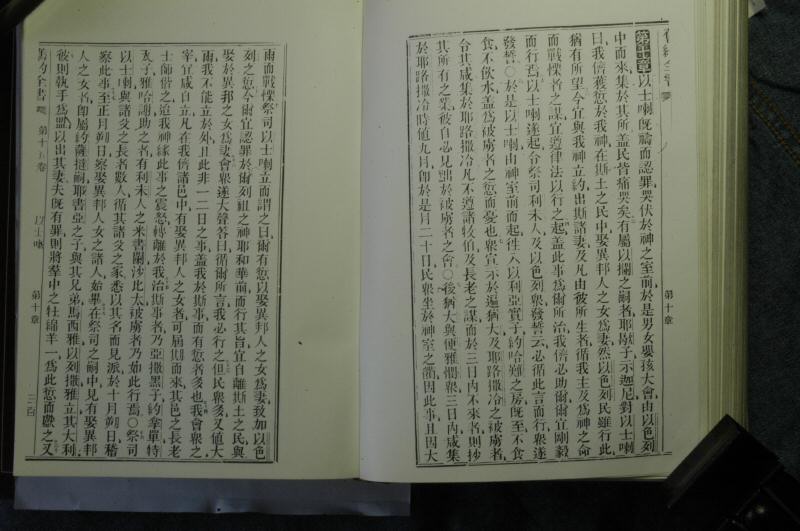 第十章以士喇既禱而認罪哭伏於神之室前於是男女嬰孩大會由以色列
中而來集於其所盖民皆痛哭矣有屬以攔之嗣者耶歇子示迦尼對以士喇
曰我儕獲愆於我神在斯土之民中娶異邦人之女爲妻然以色列民雖行此
猶有所望今宜與我神立約出斯諸妻及凡由彼所生者循我主及爲神之命
而戰慄者之謀宜遵律法以行之起盖此事爲爾所治我儕必助爾爾宜剛毅
而行焉以士喇遂起令祭司利未人及以色列衆發誓云必循此言而行衆遂
發誓○於是以士喇由神室前而起徃入以利亞實子約哈難之房既至不食
食不飲水盖爲被虜者之愆而憂也衆宣示於遍猶大及耶路撒冷之被虜者
令其咸集於耶路撒冷凡不遵諸牧伯及長老之謀而於三日內不來者則抄
其所有之業彼自必見黜於被虜者之會○後猶大與便雅憫衆三日內咸集
於耶路撒冷時値九月卽於是月二十日民衆坐於神室之衢因此事且因大
雨而戰慄祭司以士喇立而謂之曰爾有愆以娶異邦人之女爲妻致加以色
列之愆今爾宜認罪於爾列祖之神耶和華前而行其旨宜自離斯土之民與
娶於異邦之女爲妻會衆遂大聲答曰循爾所言我必行之但民衆多又値大
雨我不能立於外且此非一二日之事盖我於斯事而有愆者多也我會衆之
宰宜咸自立凡在我儕諸邑中有娶異邦人之女者可屆期而來其邑之長老
士師偕之迨我神緣此事之震怒轉離於我治斯事者乃亞撒黑子約拿單特
瓦子雅哈謝助之者有利未人之米書闌沙比太被虜者乃如此行焉○祭司
以士喇與諸父之長者數人循其諸父之家悉以其名而見派於十月朔日稽
察此事至正月朔日察娶異邦人女之諸人始畢在祭司之嗣中見有娶異邦
人之女者卽屬約薩撻嗣耶書亞之子與其兄弟馬西雅以列撒雅立其大利
彼則執手爲盟以出其妻夫既有罪則將羣中之牡綿羊一爲此愆而獻之又
舊約全書 第十五卷 以士喇 第十章 三百